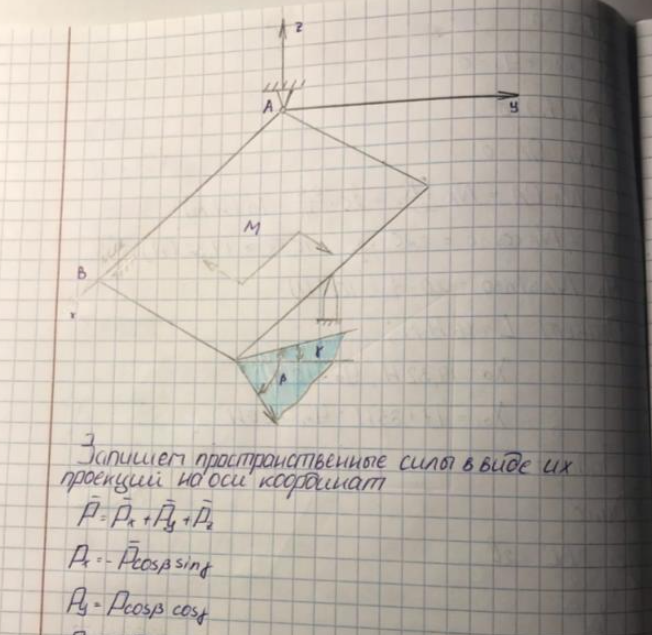 z
A
y
M
B
x
γ
β
Запишем пространственные силы в виде их
проекций на оси координат
P̄ = P̄x + P̄y + P̄z
Px = - P̄cosβ sinγ
Py = Pcosβ cosγ